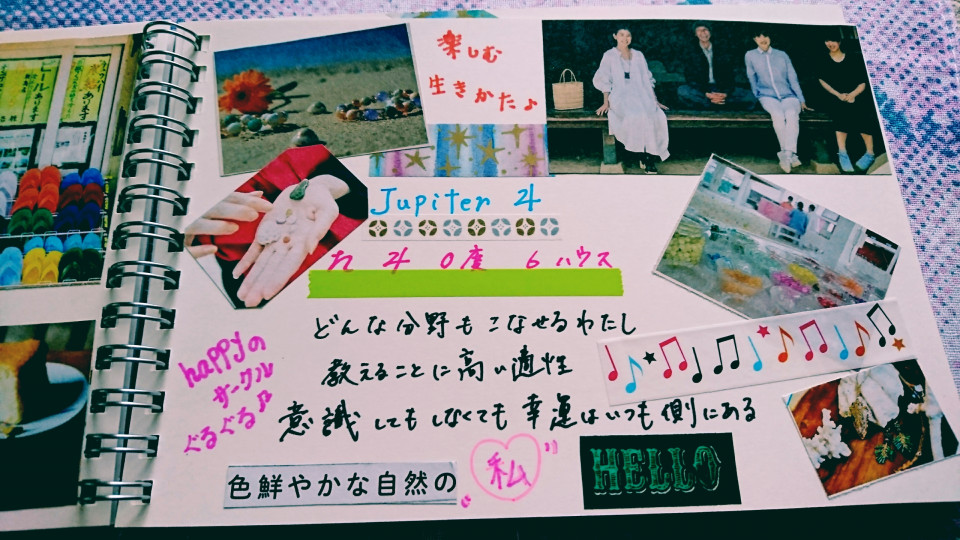 楽しむ
生きかた♪
Jupiter ♃
♃ 0度 6ハウス
どんな分野もこなせるわたし
教えることに高い適性
意識してもしなくても幸運はいつも側にある
happyの
サークル
ぐるぐる♫
色鮮やかな自然の
私
HELLO